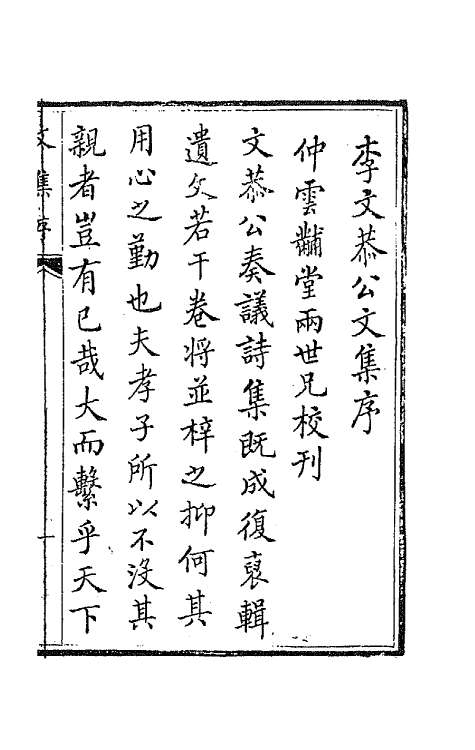 李文恭公文集序
仲雲黼堂兩世兄校刊
文恭公奏議詩集既成復裒輯
遺文若干卷將並梓之抑何其
用心之勤也夫孝子所以不沒其
親者豈有已哉大而繫乎天下
文集序
一